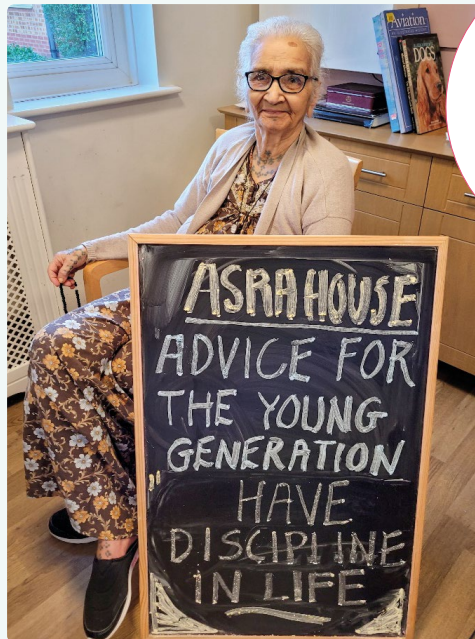 Aviation
DOGS
ASRA HOUSE
ADVICE FOR
THE YOUNG
GENERATION
"HAVE
DISCIPLINE
IN LIFE